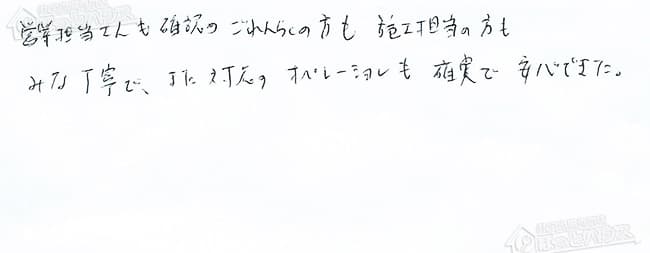 営業担当さんも確認のごれんらくの方も 施工担当の方も
みな丁寧で、また対応のオペレーションも 確実で 安心できた。